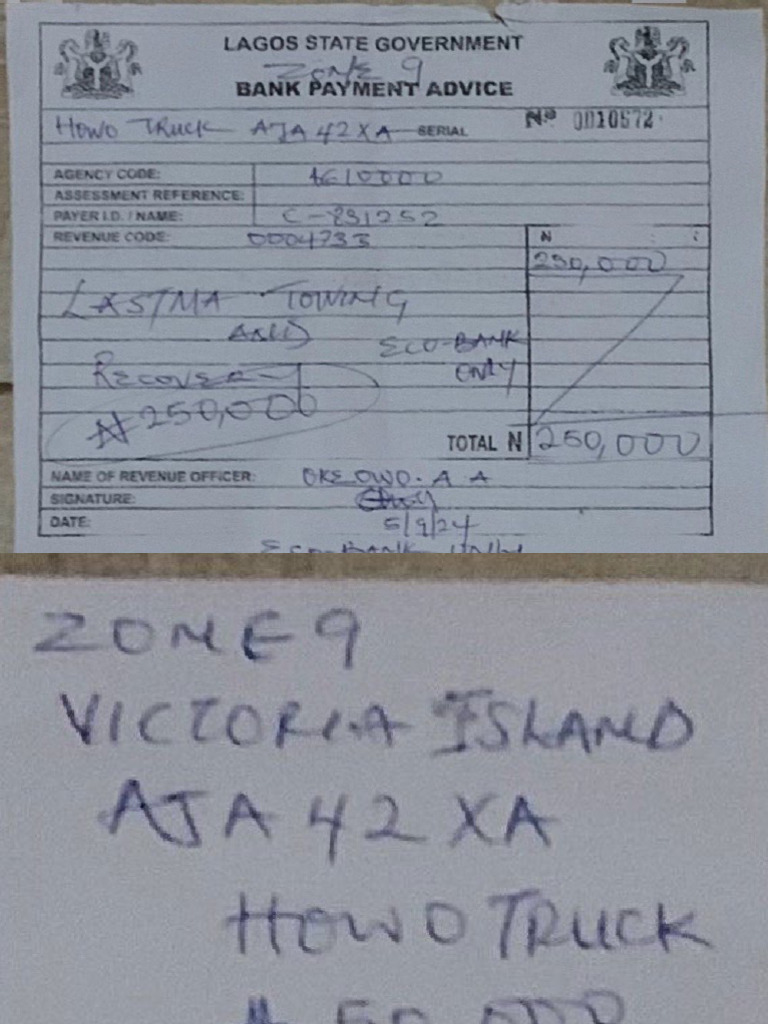 LAGOS STATE GOVERNMENT
ZONE 9
BANK PAYMENT ADVICE
HOWO TRUCK AJA 42 XA SERIAL Nº 0010572
AGENCY CODE:
ASSESSMENT REFERENCE:
PAYER I.D. / NAME: C-
REVENUE CODE: 0004733 N
250,000
LASTMA TOWING
AND ECO-BANK
RECOVERY ONLY
₦250,000
TOTAL N 250,000
NAME OF REVENUE OFFICER: OKE OWO. A A
SIGNATURE:
DATE: 5/9/24
ECO-BANK ONLY
ZONE 9
VICTORIA ISLAND
AJA 42 XA
HOWO TRUCK